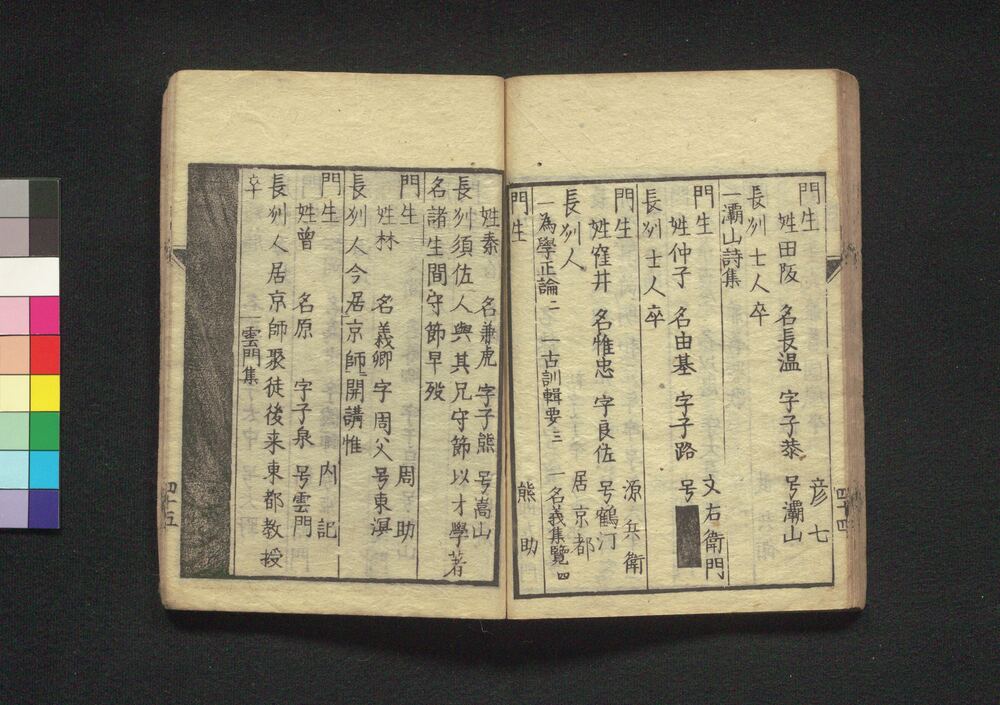 門生 彦七
姓田阪 名長温 字子恭 号灞山
長州士人卒
一灞山詩集
門生 文右衛門
姓仲子 名由基 字子路 号
長州士人卒
門生 源兵衛
姓窪井 名惟忠 字良佐 号鶴汀
長州人 居京都
一為學正論二 一古訓輯要三 一名義集覽四
門生 熊助
四十四
姓秦 名兼虎 字子熊 号嵩山
長州須佐人與其兄守節以才學著
名諸生間守節早歿
門生 周助
姓林 名義卿 字周父 号東溟
長州人今居京師開講惟
門生 内記
姓曾 名原 字子泉 号雲門
長州人居京師聚徒後来東都教授
卒 一雲門集
四十五